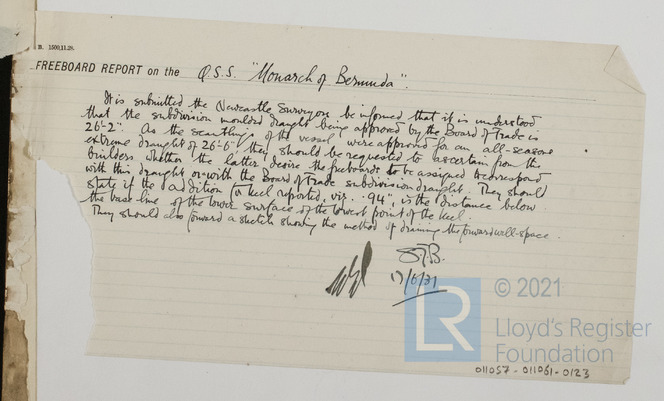 B. 1500,11.28.
FREEBOARD REPORT on the Q.S.S. "Monarch of Bermuda".
It is submitted the Newcastle Surveyors be informed that it is understood
that the subdivision moulded draught being approved by the Board of Trade is
26'-2". As the scantlings of the vessel were approved for an all-seasons
extreme draught of 26'-6" they should be requested to ascertain from the
builders whether the latter desire the freeboards to be assigned to correspond
with this draught or with the Board of Trade subdivision draught. They should
state if the addition for keel reported, viz. .94", is the distance below
the base line of the lower surface of the lowest point of the keel.
They should also forward a sketch showing the method of draining the forward well-space.
17/6/31
© 2021
LR
Lloyd's Register
Foundation
011057-011061-0123